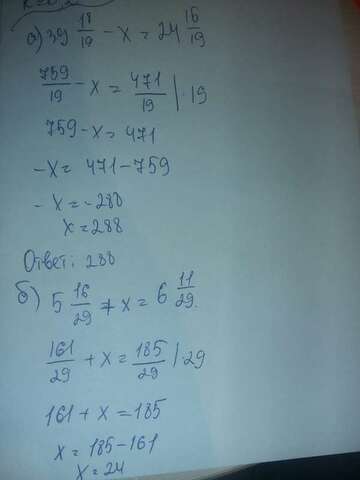 а) 39 18/19 - x = 24 15/19
759/19 - x = 471/19 | · 19
759 - x = 471
- x = 471 - 759
- x = -288
x = 288
Ответ: 288
б) 5 16/29 + x = 6 11/29.
161/29 + x = 185/29 | · 29
161 + x = 185
x = 185 - 161
x = 24